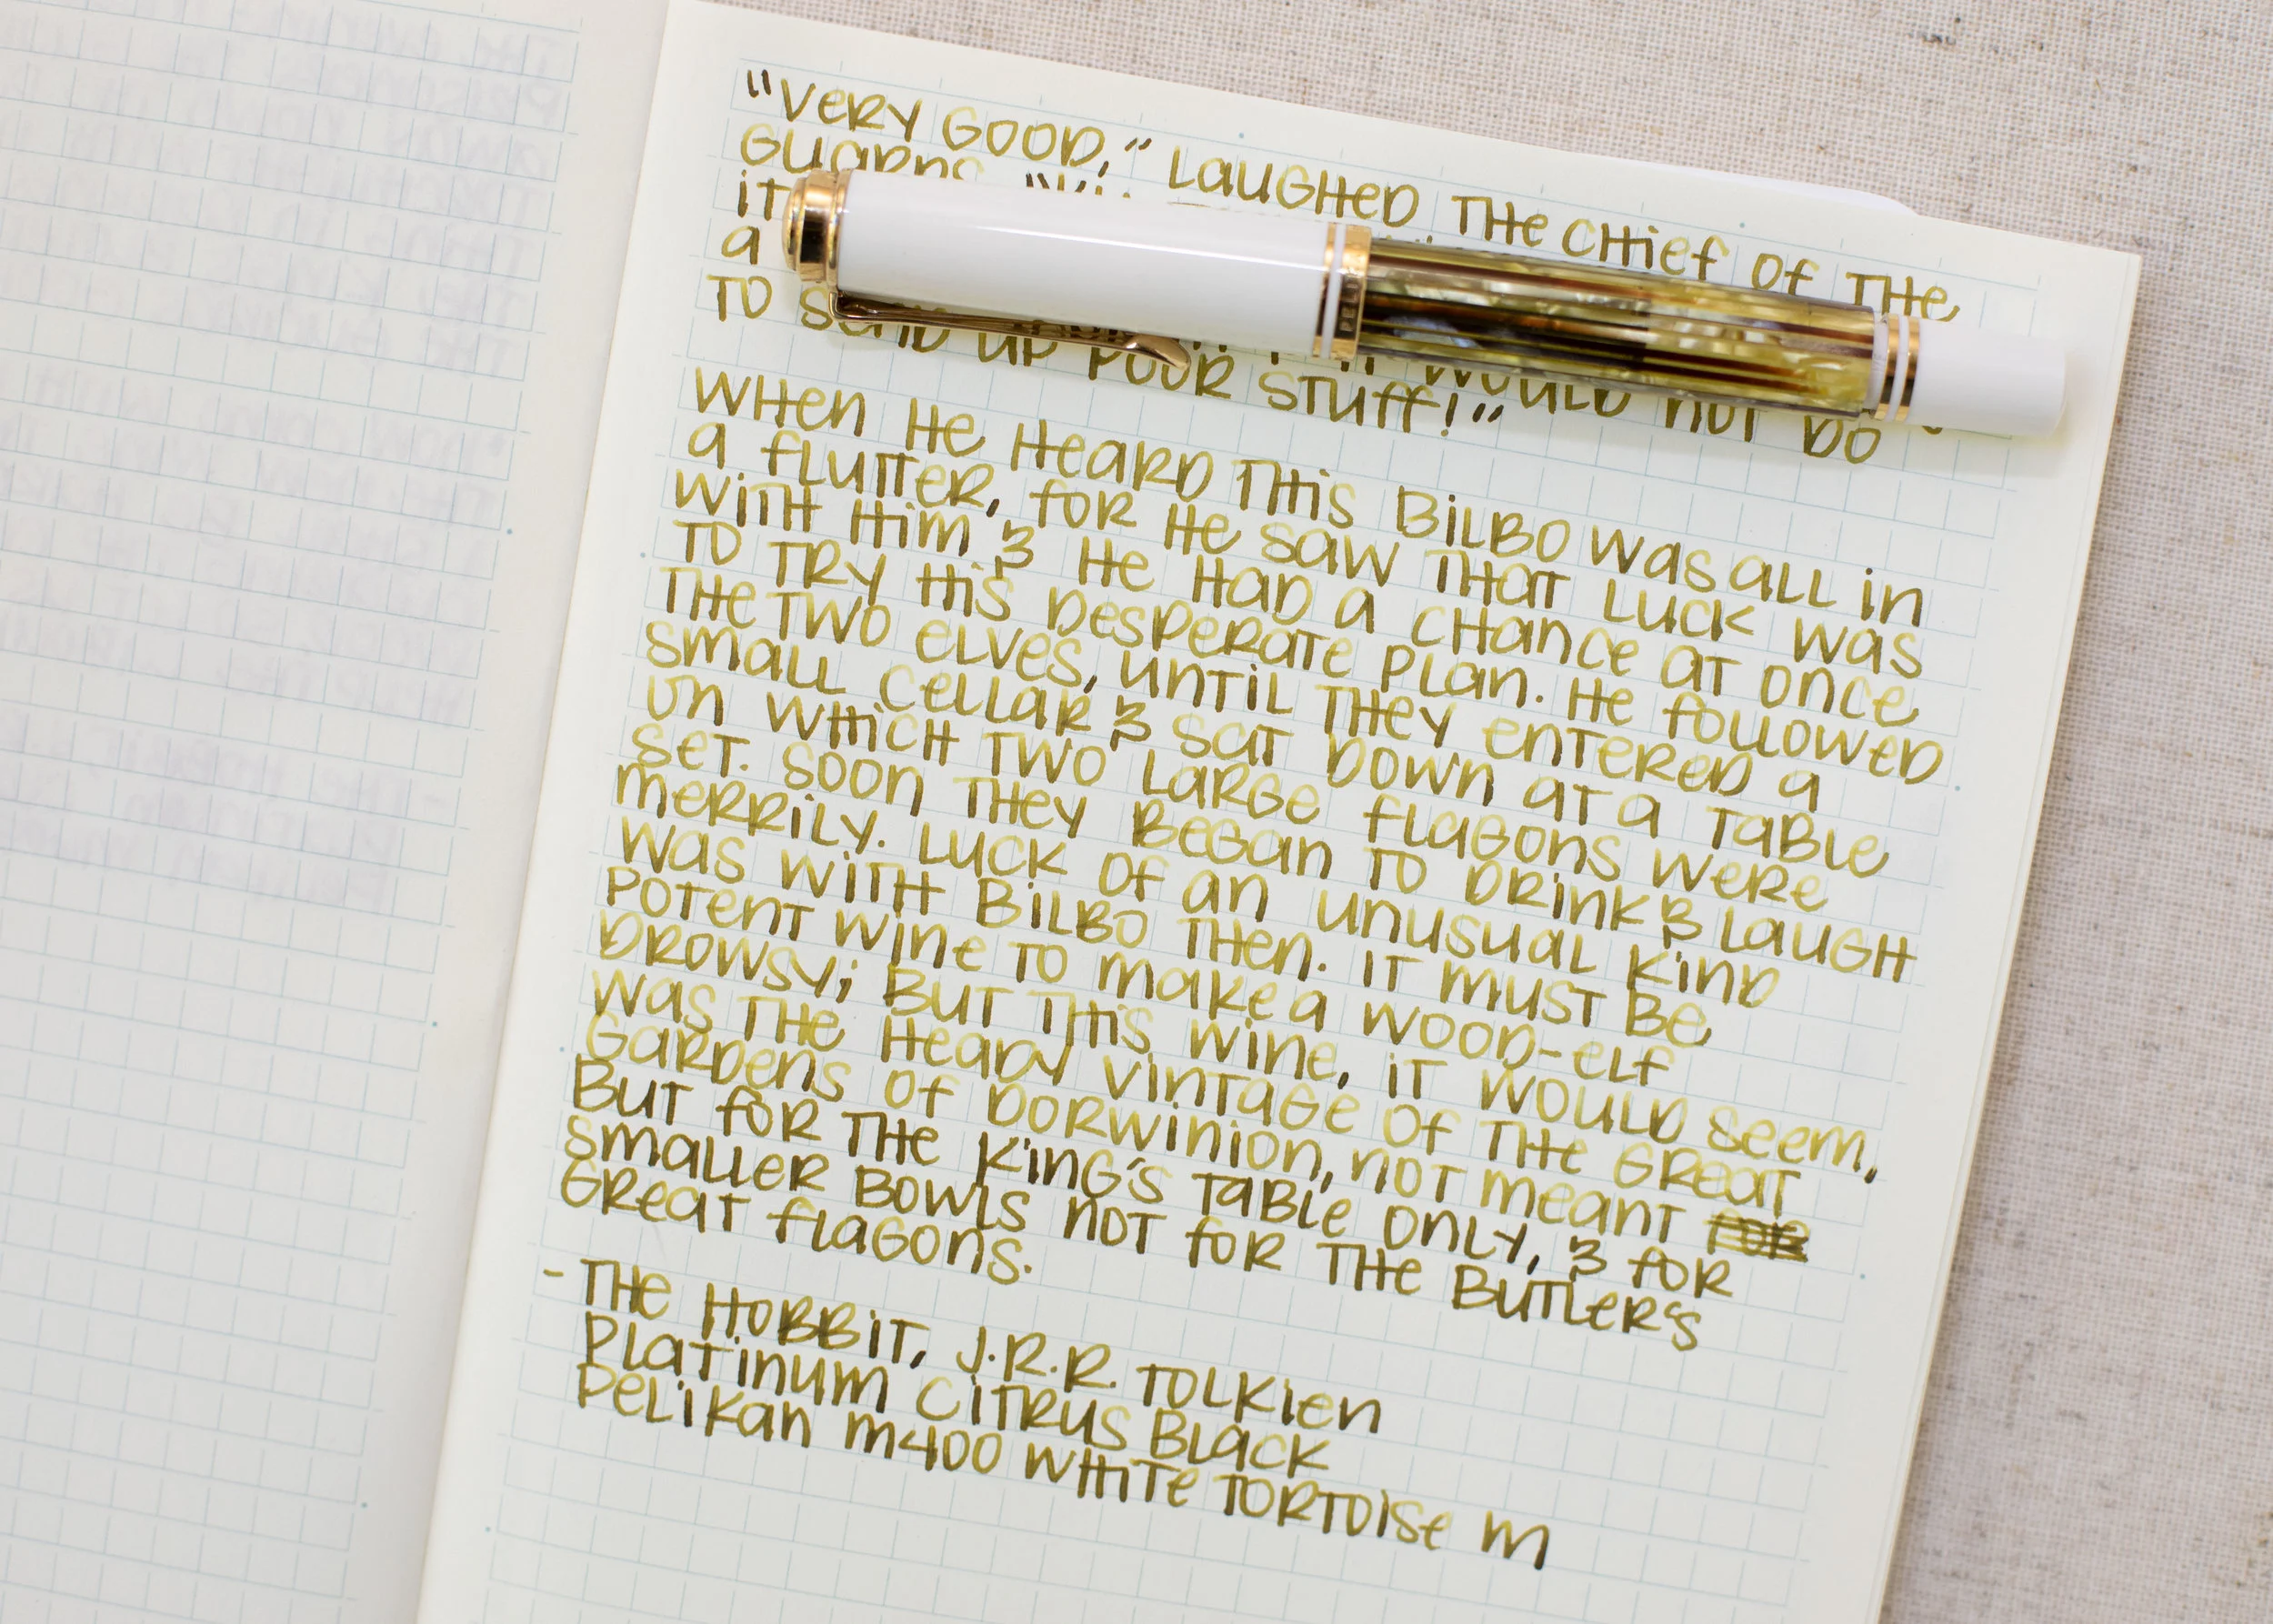 "VERY GOOD," LAUGHED THE CHIEF OF THE
GUARDS.
IT
A
TO SEND UP POOR STUFF!" WOULD NOT DO
WHEN HE HEARD THIS BILBO WAS ALL IN
A FLUTTER, FOR HE SAW THAT LUCK WAS
WITH HIM & HE HAD A CHANCE AT ONCE
TO TRY HIS DESPERATE PLAN. HE FOLLOWED
THE TWO ELVES, UNTIL THEY ENTERED A
SMALL CELLAR & SAT DOWN AT A TABLE
ON WHICH TWO LARGE FLAGONS WERE
SET. SOON THEY BEGAN TO DRINK & LAUGH
MERRILY. LUCK OF AN UNUSUAL KIND
WAS WITH BILBO THEN. IT MUST BE
POTENT WINE TO MAKE A WOOD-ELF
DROWSY; BUT THIS WINE, IT WOULD SEEM,
WAS THE HEADY VINTAGE OF THE GREAT
GARDENS OF DORWINION, NOT MEANT FOR
BUT FOR THE KING'S TABLE ONLY, & FOR
SMALLER BOWLS NOT FOR THE BUTLER'S
GREAT FLAGONS.
- THE HOBBIT, J.R.R. TOLKIEN
PLATINUM CITRUS BLACK
PELIKAN M400 WHITE TORTOISE M